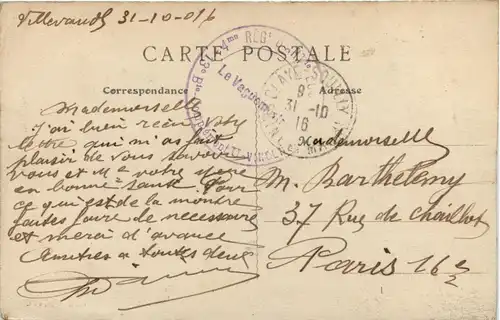 Villevaudé 31-10-016
CARTE POSTALE
Correspondance
Adresse
Le Vaguemestre
CLAYE-SOUILLY
31-10
16
Mademoiselle
J'ai bien reçu votre
lettre qui m'as fait
plaisir de vous savoir
vous et Me votre mère
en bonne santé. Pour
ce qui est de la montre
faites faire le necessaire
et merci d'avance
Amitiés a toutes deux
Mademoiselle
M. Barthelemy
37 Rue de Chaillot
Paris 16e